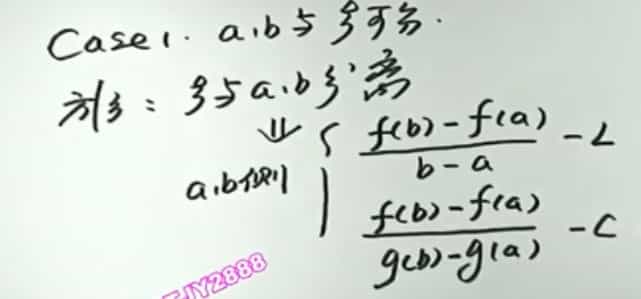 Case1. a,b与ξ可分.
方法: ξ与a,b分离
⇓
f(b)-f(a) / b-a -L
a,b侧
f(b)-f(a) / g(b)-g(a) -C
JY2888